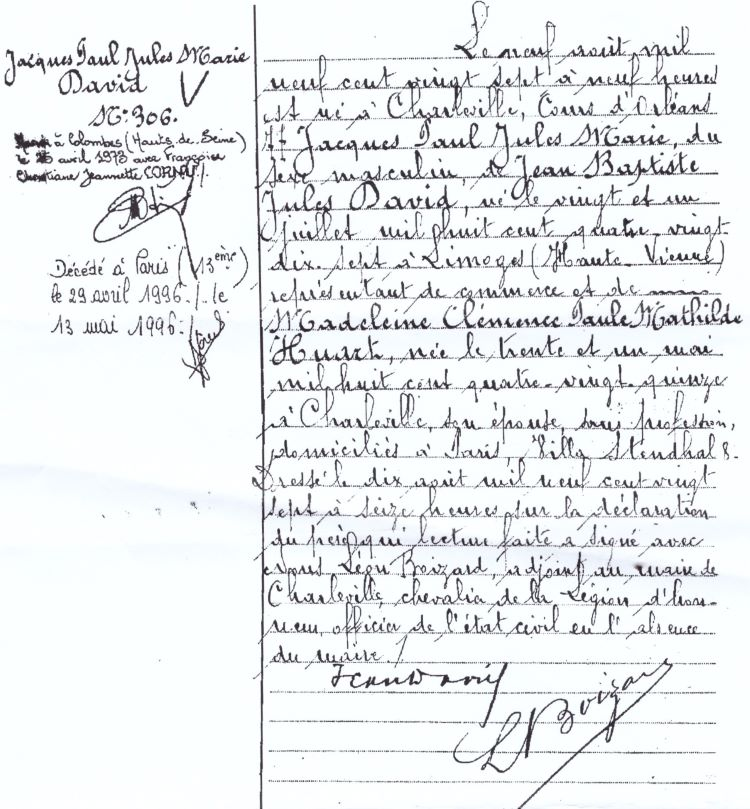 Jacques Paul Jules Marie
David
N° 306.
Marié à Colombes (Hauts de Seine)
le 26 avril 1973 avec Françoise
Christiane Jeannette CORNU /.
Décédé à Paris (13ème)
le 29 avril 1996 ./. le
13 mai 1996 ./
Le neuf août mil
neuf cent vingt sept à neuf heures
est né à Charleville, Cours d'Orléans
Jacques Paul Jules Marie, du
sexe masculin, de Jean Baptiste
Jules David, né le vingt et un
juillet mil huit cent quatre vingt
dix. sept à Limoges (Haute Vienne)
représentant de commerce et de
Madeleine Clémence Paule Mathilde
Huart, née le trente et un mai
mil huit cent quatre-vingt quinze
à Charleville, son épouse, sans profession,
domiciliés à Paris, Villa Stendhal 8.
Dressé le dix août mil neuf cent vingt
sept à seize heures sur la déclaration
du père qui lecture faite a signé avec
nous Léon Boizard, adjoint au maire de
Charleville, chevalier de la Légion d'hon-
neur, officier de l'état civil en l'absence
du maire. /
Jean David
L Boizard